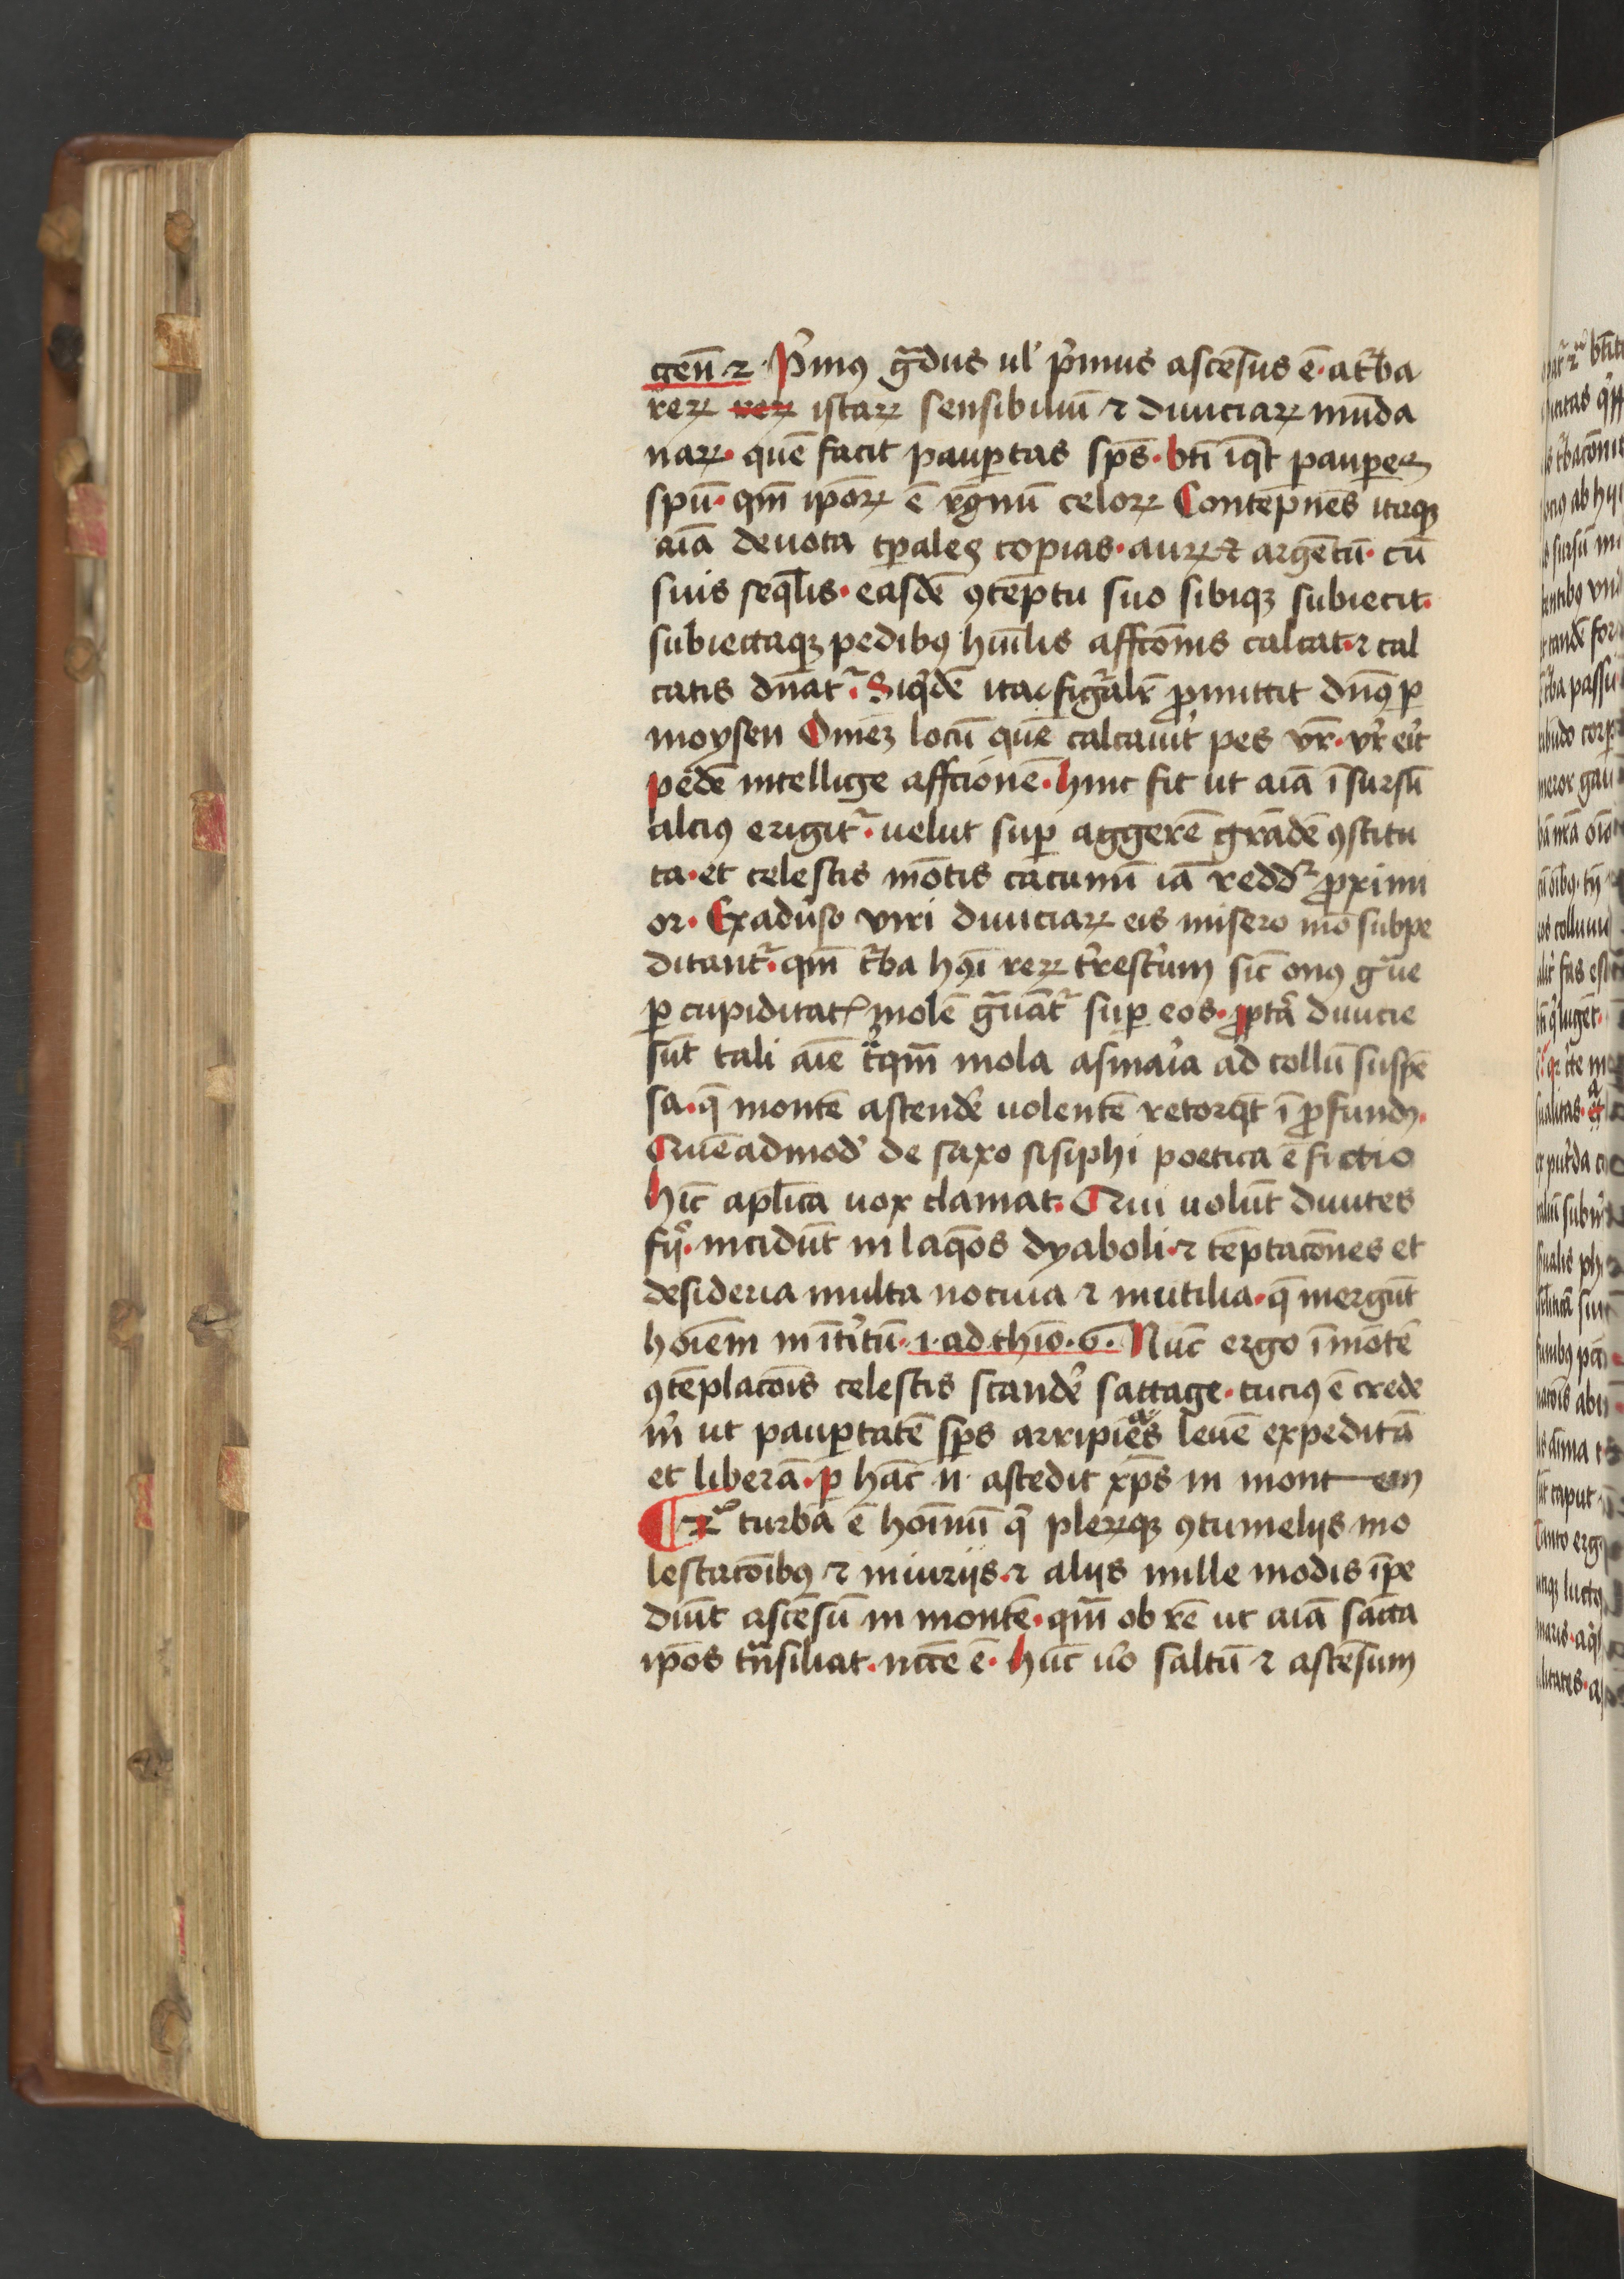 genn̄ 2· P'mꝯ gͣdus ul' p'mus ascēsus ē· a tͬba
reꝝ reꝝ istaꝝ sensibiliū ⁊ diuiciaꝝ mūda
naꝝ· quē facit paup̱tas sp̄s· bt̄i īqt̄ paup̱es
spū· qm̄ ip̄oꝝ ē rgnū celoꝝ Contēpnēs itaqꝫ
aīa deuota tp̱ales copias· auꝝ ⁊ argētū· cū
suis seq̄lis· easdē ꝯtēptu suo sibiqꝫ subiecit·
subiectaqꝫ pedibꝯ hūilis affcōnis calcat· ⁊ cal
catis dn̄at᷑· Siqͥdē ita figͬalr̄ ꝓmittit dn̄s p̱
moysen Omēꝫ locū quē calcauit̉ pes vr̄· vr̄ eͥt
pedē intellige affcionē· hinc fit ut aīa ī sursū
alciꝯ erigit᷑· uelut sup̱ aggerē grādē ꝯstitu
ta· et celestis mōtis cacumī iā redd᷑ ꝓximi
or· Exadũso viri diuiciaꝝ eis misero mō subpe
ditant᷑· qm̄ tͬba hꝯi reꝝ t̉rest̉um sic̄ onꝯ gͣue
p̱ cupiditat̄ molē gͣuāt᷑ sup̱ eos· ꝓpt̉a diuicie
sūt tali aīe tͣqm̄ mola asinaͥa ad collū suspē
sa· q̄ montē ascend̉e uolentē retorqt̄ ī ꝓfundū·
Quēadmod̄ de saxo sisiphi poetica ē fictio
hīc apl̄ica uox clamat· Qui uolūt diuites
fiͥ· incidūt in laq̄os dyaboli· ⁊ tēptacōnes et
desideria multa nociua ⁊ inutilia· q̄ mergūt
hoīem in īt̉itū· 1· ad thio· 6· Nūc ergo ī mōtē
ꝯtēplacōis celestis scand̉e sattage· tuciꝯ ē crede
m̉ ut paup̱tatē sp̄s arripiēs leuē expeditā
et liberā· p̱ hāc n̄· ascedit xp̄s in mont em
¶ 2ͣ turba ē hoīnū qͥ pleꝝqꝫ ꝯtumeliis mo
lestacōībꝯ ⁊ iniuriis· ⁊ aliis mille modis īpe
diūt ascēsū in montē· qm̄ ob rē ut aīa sācta
ip̄os tͣnsiliat· nccē ē· hūc ũo saltū ⁊ ascēsum